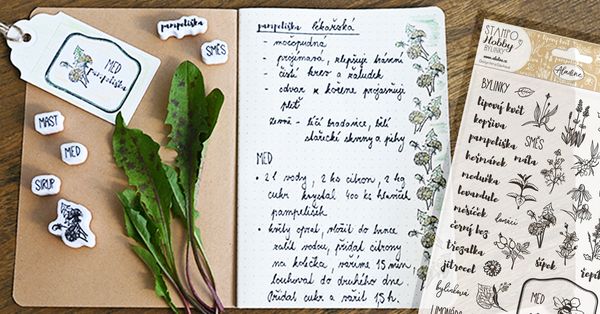 MED
pampeliška
pampeliška
SMĚS
MAST
MED
SIRUP
pampeliška lékařská
- močopudná
- projímavá, zlepšuje trávení
čistí krev a žaludek
- odvar z kořene projasňuje
pleť
zevně - léčí bradavice, bělí
stařecké skvrny a pihy
MED
• 2 l vody, 2 ks citron, 2 kg
cukr krystal 400 ks hlaviček
pampelišek
• květy oprat, vložit do hrnce
zalít vodou, přidat citrony
na kolečka, vaříme 15 min,
louhovat do druhého dne.
Přidat cukr a vařit 1,5 h.
STAMPO
Hobby
BYLINKY
Aladine
BYLINKY
lipový květ
kopřiva
pampeliška
SMĚS
heřmánek
máta
meduňka
levandule
měsíček
louhující
černý bez
třezalka
jitrocel
šípek
bylinková
LIMONÁDA
MED